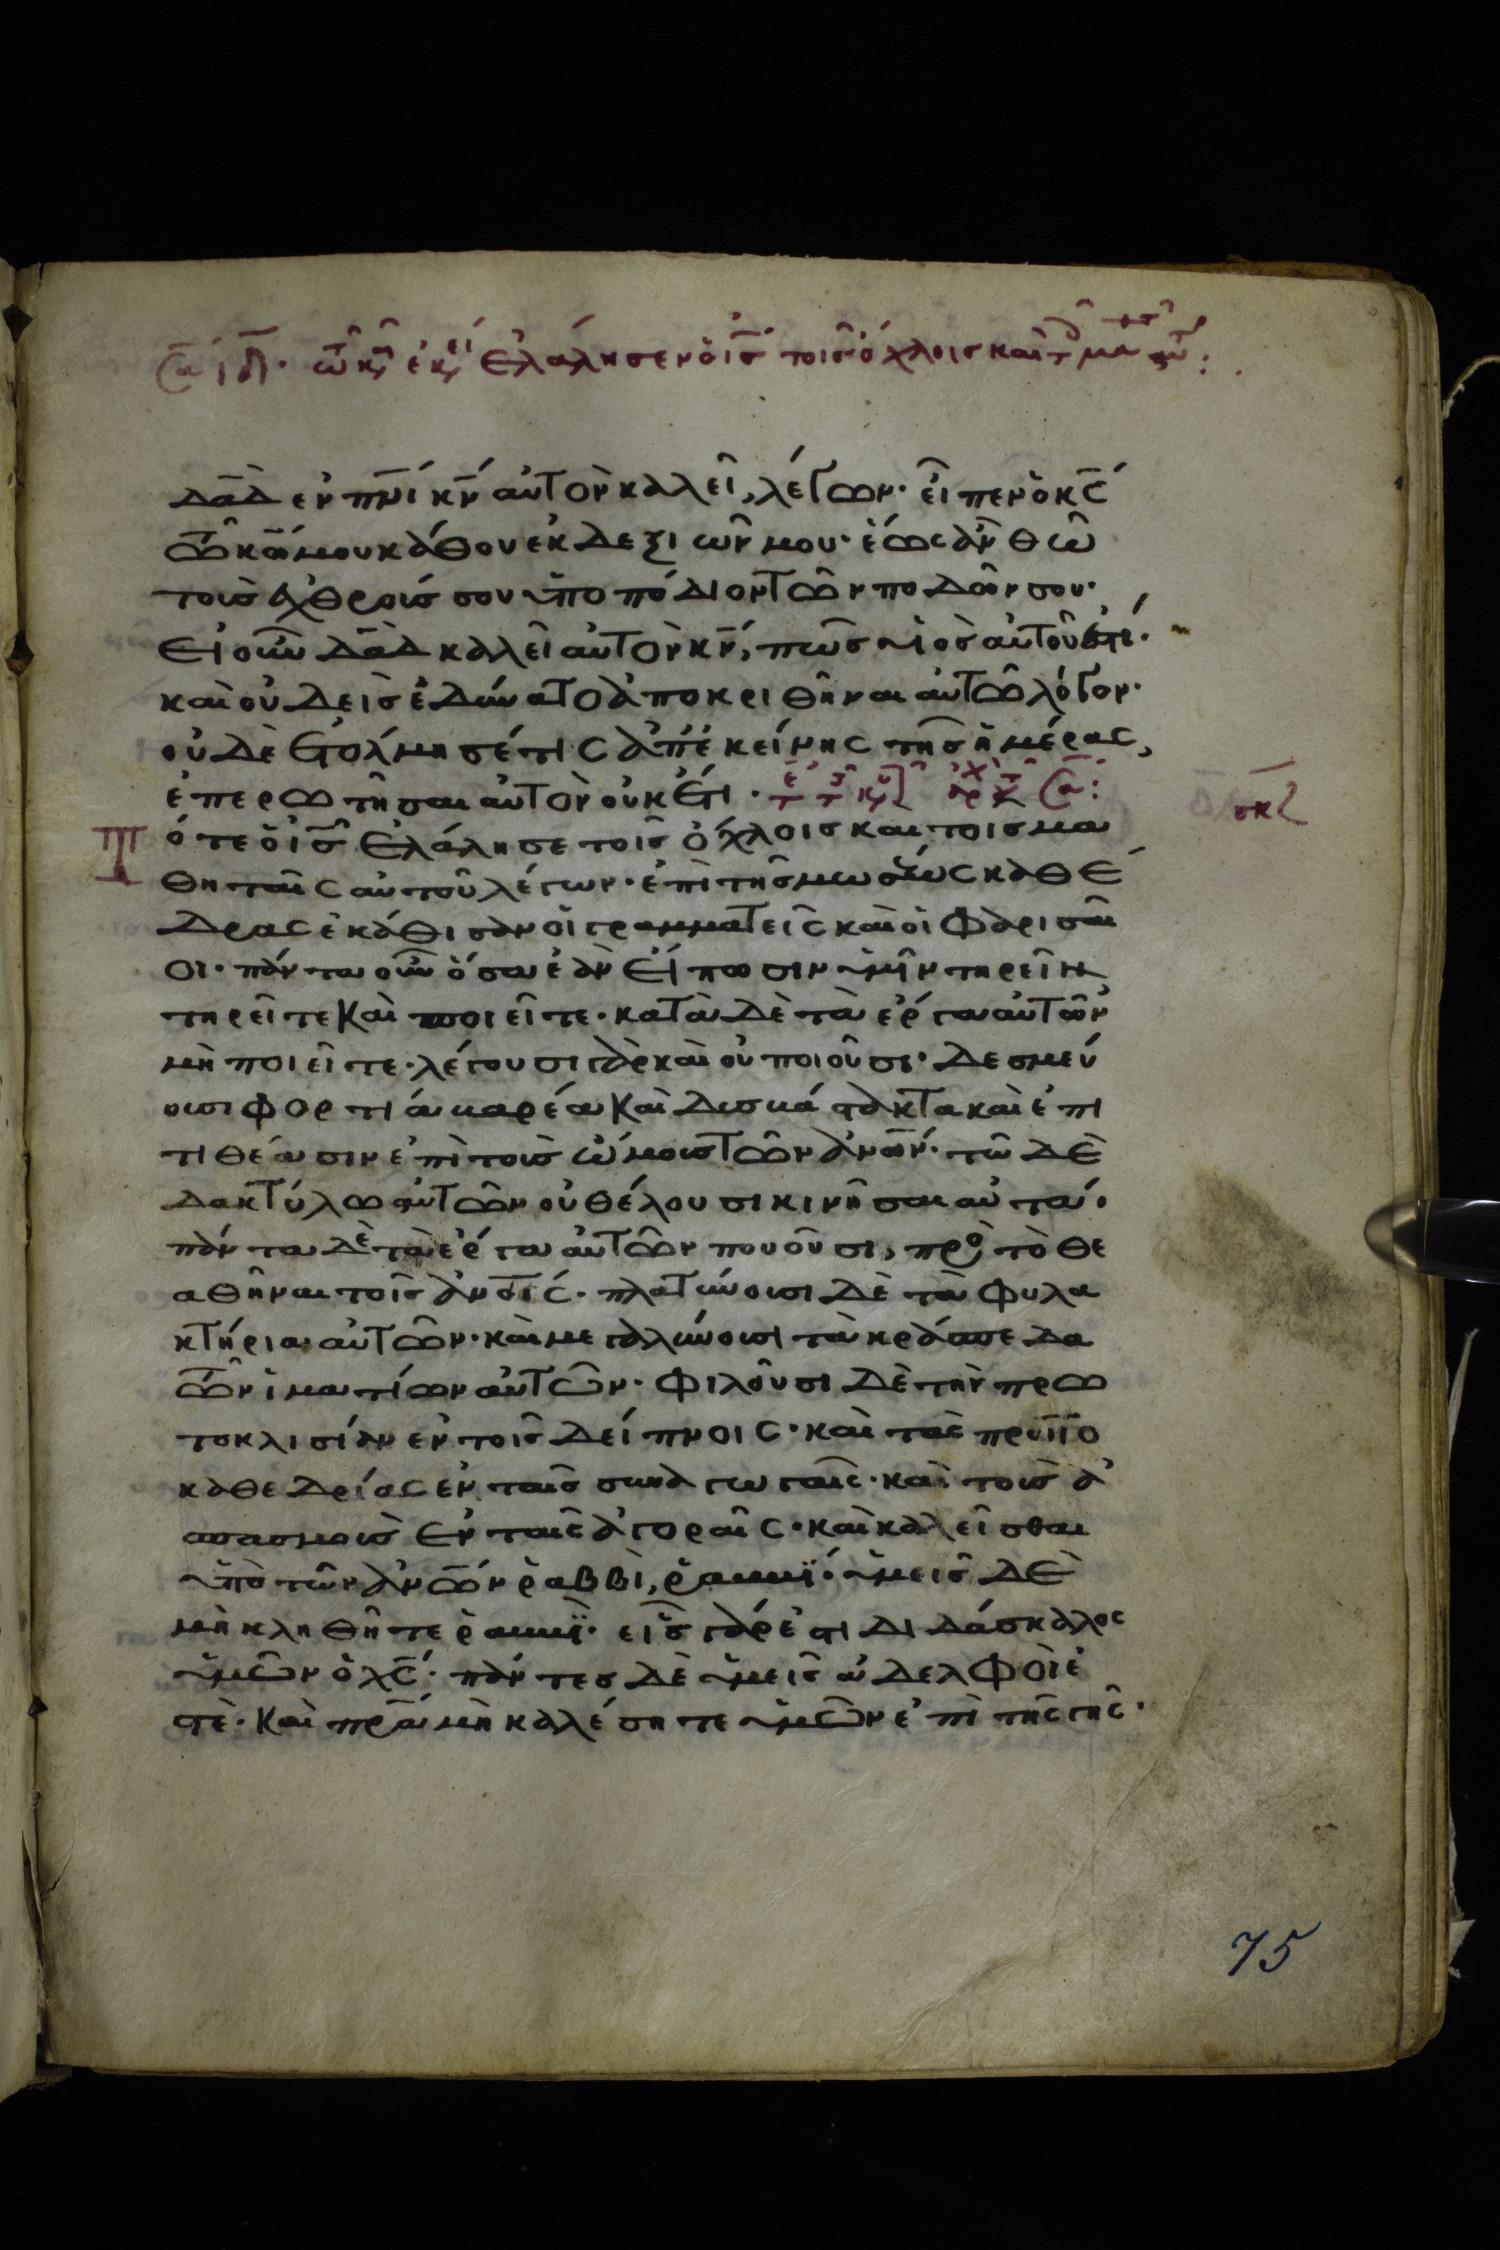 τῷ καιρῷ ἐκεί ἐλάλησεν ὁ ις τοῖς ὄχλοις καὶ τ μα
δαδ ἐν πνι κν αὐτὸν καλεῖ, λέγων· εἶπεν ὁ κς
τῶ κω μου κάθου ἐκ δεξιῶν μου· ἕως ἂν θῶ
τοὺς ἐχθρούς σου ὑποπόδιον τῶν ποδῶν σου·
Εἰ οὖν δαδ καλεῖ αὐτὸν κν, πῶς υἱὸς αὐτοῦ ἐστί·
καὶ οὐδεὶς ἐδύνατο ἀποκριθῆναι αὐτῶ λόγον·
οὐδὲ ἐτόλμησέ τις ἀπ' ἐκείνης τῆς ἡμέρας,
ἐπερωτῆσαι αὐτὸν οὐκέτι·
σκζ
ότε ὁ ις ἐλάλησε τοῖς ὄχλοις καὶ τοῖς μα
θηταῖς αὐτοῦ λέγων· ἐπὶ τῆς μωσέως καθέ
δρας ἐκάθισαν οἱ γραμματεῖς καὶ οἱ φαρισαῖ
οι· πάντα οὖν ὅσα ἐὰν εἴπωσιν ὑμῖν τηρεῖν
τηρεῖτε καὶ ποιεῖτε· κατὰ δὲ τὰ ἔργα αὐτῶν
μὴ ποιεῖτε· λέγουσι γὰρ καὶ οὐ ποιοῦσι· δεσμεύ
ουσι φορτία βαρέα καὶ δυσβάστακτα καὶ ἐπι
τιθέασιν ἐπὶ τοὺς ὤμους τῶν ἀνων· τῶ δὲ
δακτύλω αὐτῶν οὐ θέλουσι κινῆσαι αὐτά·
πάντα δὲ τὰ ἔργα αὐτῶν ποιοῦσι, πρὸ τὸ θε
αθῆναι τοῖς ἀνοις· πλατύνουσι δὲ τὰ φυλα
κτήρια αὐτῶν· καὶ μεγαλύνουσι τὰ κράσπεδα
τῶν ἱματίων αὐτῶν· φιλοῦσι δὲ τὴν πρω
τοκλισίαν ἐν τοῖς δείπνοις· καὶ τὰς πρωτο
καθεδρίας ἐν ταῖς συναγωγαῖς· καὶ τοὺς ἀ
σπασμοὺς ἐν ταῖς ἀγοραῖς· καὶ καλεῖσθαι
ὑπὸ τῶν ἀνων ῥαββὶ, ῥαββΐ· ὑμεῖς δὲ
μὴ κληθῆτε ῥαββΐ· εἷς γάρ ἐστι διδάσκαλος
ὑμῶν ὁ χς· πάντες δὲ ὑμεῖς ἀδελφοὶ ἐ
στέ· καὶ πρα μὴ καλέσητε ὑμῶν ἐπὶ τῆς γῆς·
75